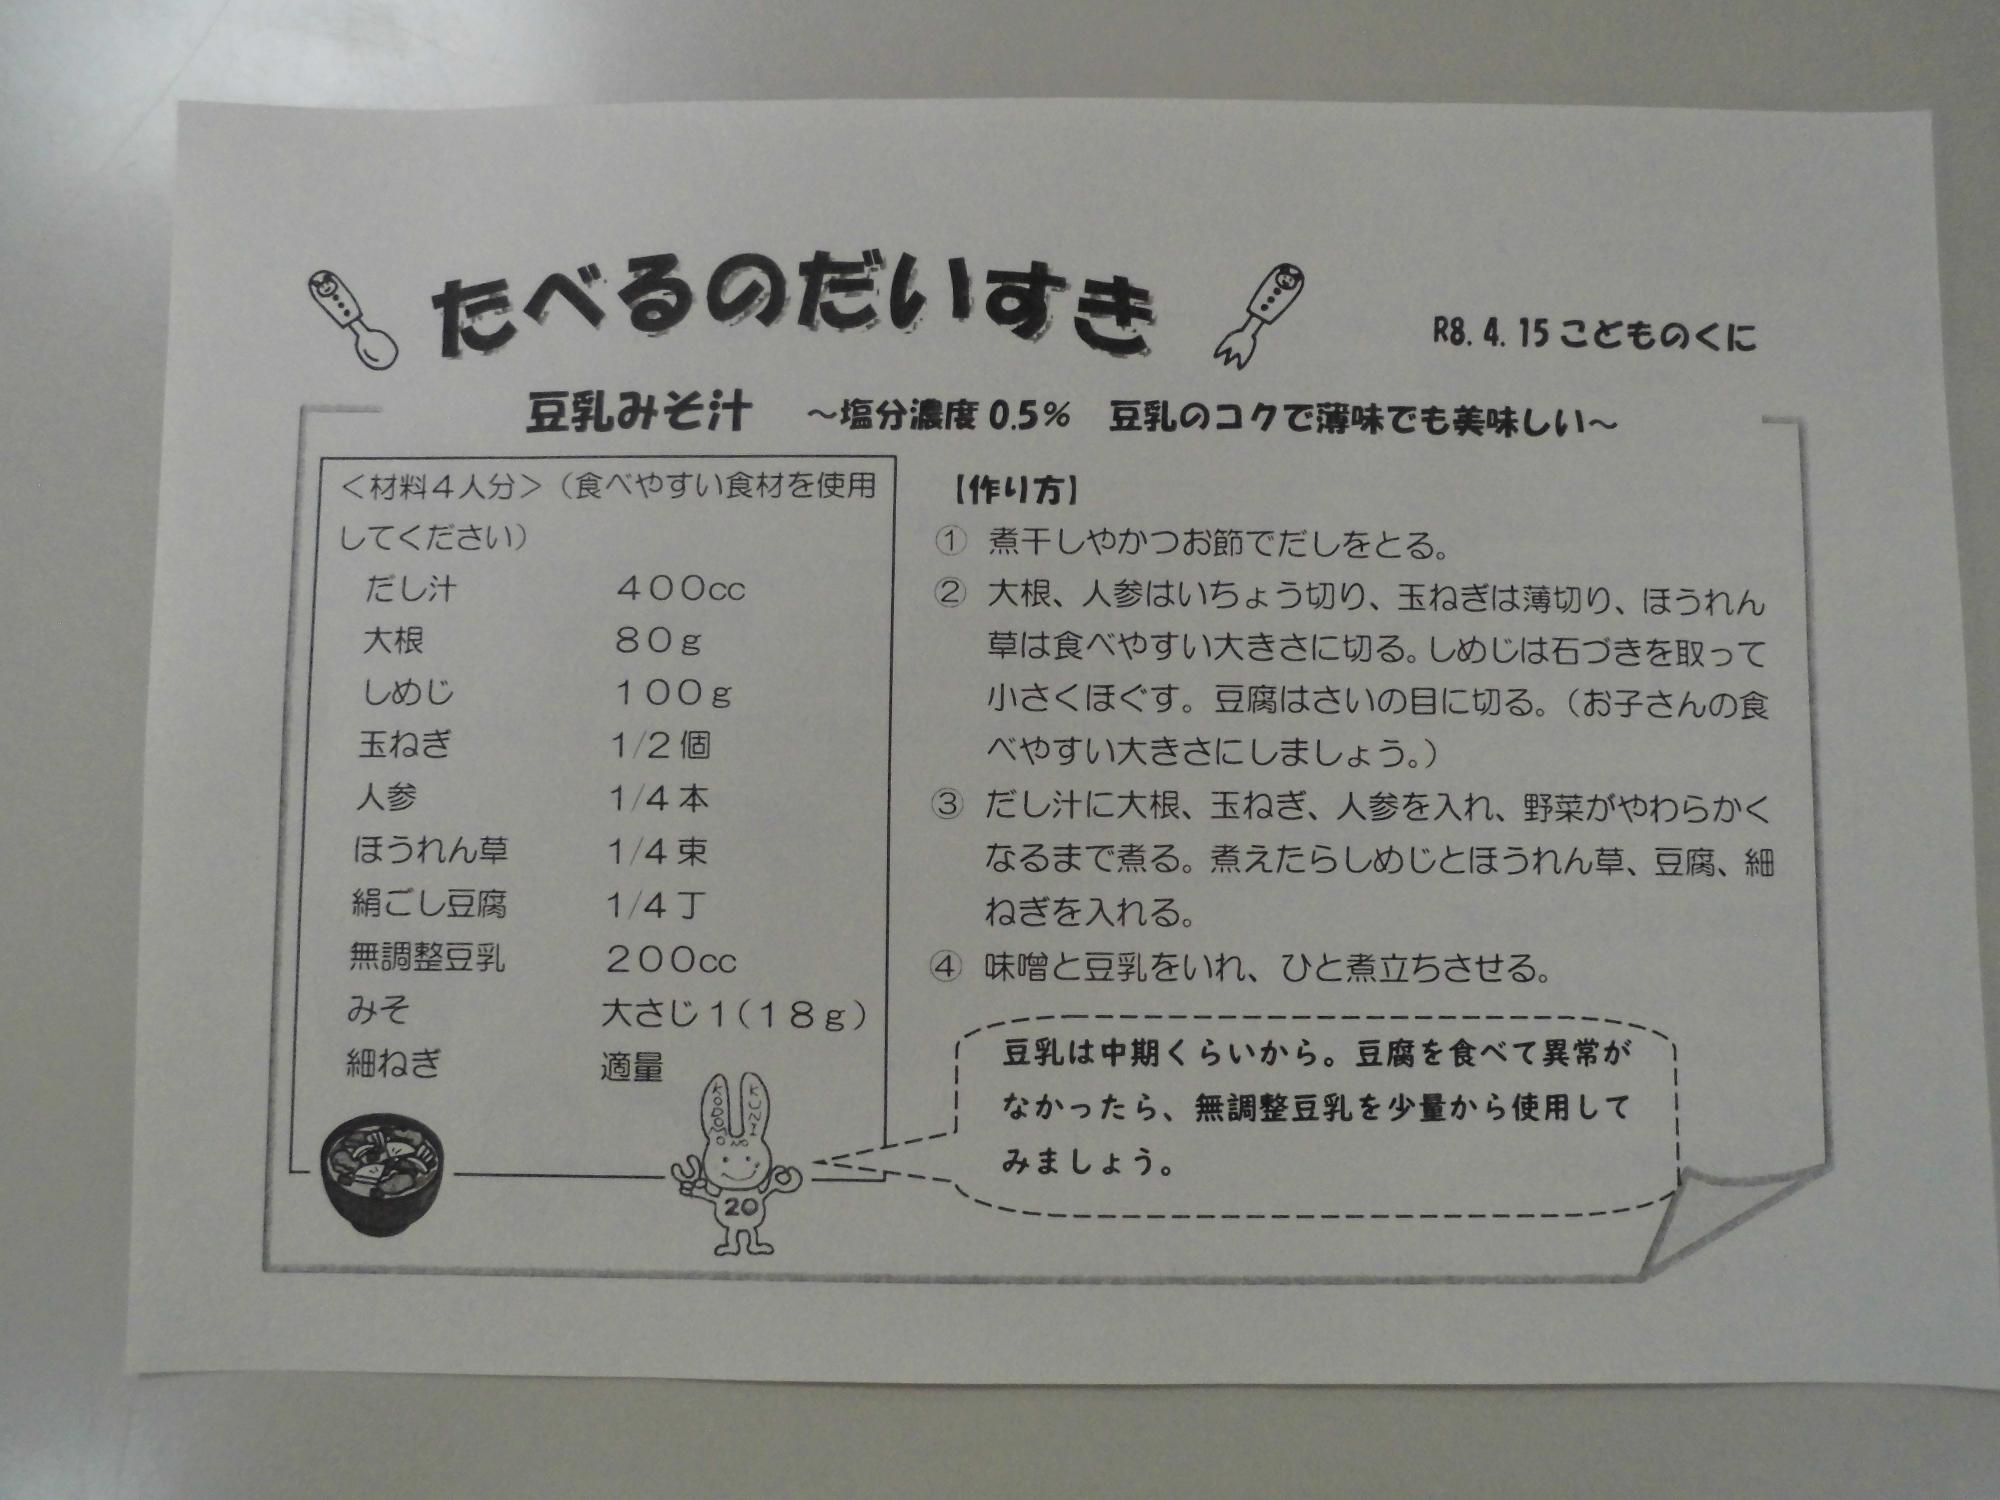 たべるのだいすき
R8.4.15こどものくに
豆乳みそ汁 ～塩分濃度0.5% 豆乳のコクで薄味でも美味しい～
＜材料４人分＞（食べやすい食材を使用
してください）
だし汁 ４００cc
大根 ８０ｇ
しめじ １００ｇ
玉ねぎ 1/2個
人参 1/4本
ほうれん草 1/4束
絹ごし豆腐 1/4丁
無調整豆乳 ２００cc
みそ 大さじ１（１８ｇ）
細ねぎ 適量
【作り方】
① 煮干しやかつお節でだしをとる。
② 大根、人参はいちょう切り、玉ねぎは薄切り、ほうれん
草は食べやすい大きさに切る。しめじは石づきを取って
小さくほぐす。豆腐はさいの目に切る。（お子さんの食
べやすい大きさにしましょう。）
③ だし汁に大根、玉ねぎ、人参を入れ、野菜がやわらかく
なるまで煮る。煮えたらしめじとほうれん草、豆腐、細
ねぎを入れる。
④ 味噌と豆乳をいれ、ひと煮立ちさせる。
豆乳は中期くらいから。豆腐を食べて異常が
なかったら、無調整豆乳を少量から使用して
みましょう。
KODOMO
NO
KUNI
20